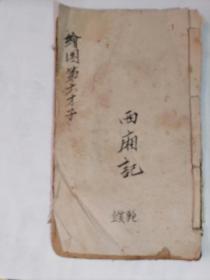 繪圖第六才子
西廂記